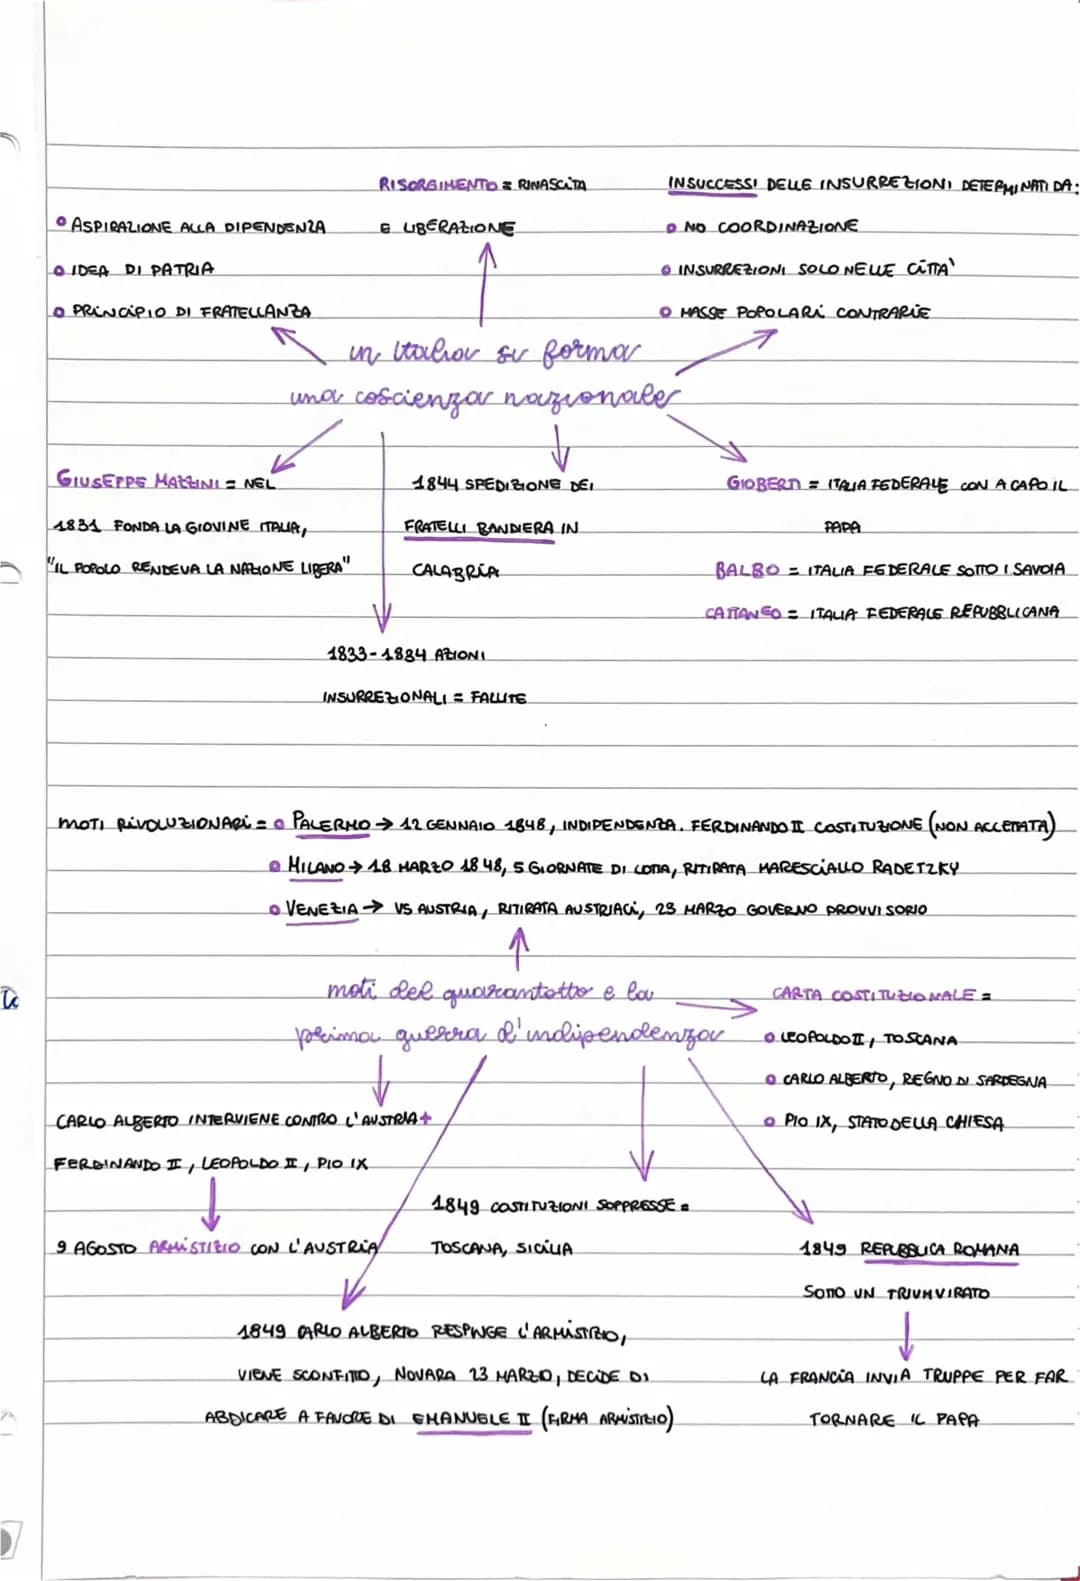 RISORGIMENTO = RINASCITA
E LIBERAZIONE
INSUCCESSI DELLE INSURREZIONI DETERMINATI DA:
NO COORDINAZIONE
INSURREZIONI SOLO NELLE CITTA'
MASSE POPOLARI CONTRARIE
ASPIRAZIONE ALLA DIPENDENZA
IDEA DI PATRIA
PRINCIPIO DI FRATELLANZA
in Italia si forma
una coscienza nazionale
GIUSEPPE MAZZINI = NEL
1831 FONDA LA GIOVINE ITALIA,
"IL POPOLO RENDEVA LA NAZIONE LIBERA"
1844 SPEDIZIONE DEI
FRATELLI BANDIERA IN
CALABRIA
GIOBERTI = ITALIA FEDERALE CON A CAPO IL
PAPA
BALBO = ITALIA FEDERALE SOTTO I SAVOIA
CATTANEO = ITALIA FEDERALE REPUBBLICANA
1833-1834 AZIONI
INSURREZIONALI = FALLITE
MOTI RIVOLUZIONARI = PALERMO → 12 GENNAIO 1848, INDIPENDENZA. FERDINANDO II COSTITUZIONE (NON ACCETTATA)
MILANO → 18 MARZO 1848, 5 GIORNATE DI LOTTA, RITIRATA MARESCIALLO RADETZKY
VENEZIA → VS AUSTRIA, RITIRATA AUSTRIACI, 23 MARZO GOVERNO PROVVISORIO
moti del quarantotto e la
prima guerra d'indipendenza
CARTA COSTITUZIONALE =
LEOPOLDO II, TOSCANA
CARLO ALBERTO, REGNO DI SARDEGNA
PIO IX, STATO DELLA CHIESA
CARLO ALBERTO INTERVIENE CONTRO L'AUSTRIA +
FERDINANDO II, LEOPOLDO II, PIO IX
9 AGOSTO ARMISTIZIO CON L'AUSTRIA
1849 COSTITUZIONI SOPPRESSE =
TOSCANA, SICILIA
1849 REPUBBLICA ROMANA
SOTTO UN TRIUMVIRATO
LA FRANCIA INVIA TRUPPE PER FAR
TORNARE IL PAPA
1849 CARLO ALBERTO RESPINGE L'ARMISTIZIO,
VIENE SCONFITTO, NOVARA 23 MARZO, DECIDE DI
ABDICARE A FAVORE DI EMANUELE II (FIRMA ARMISTIZIO)